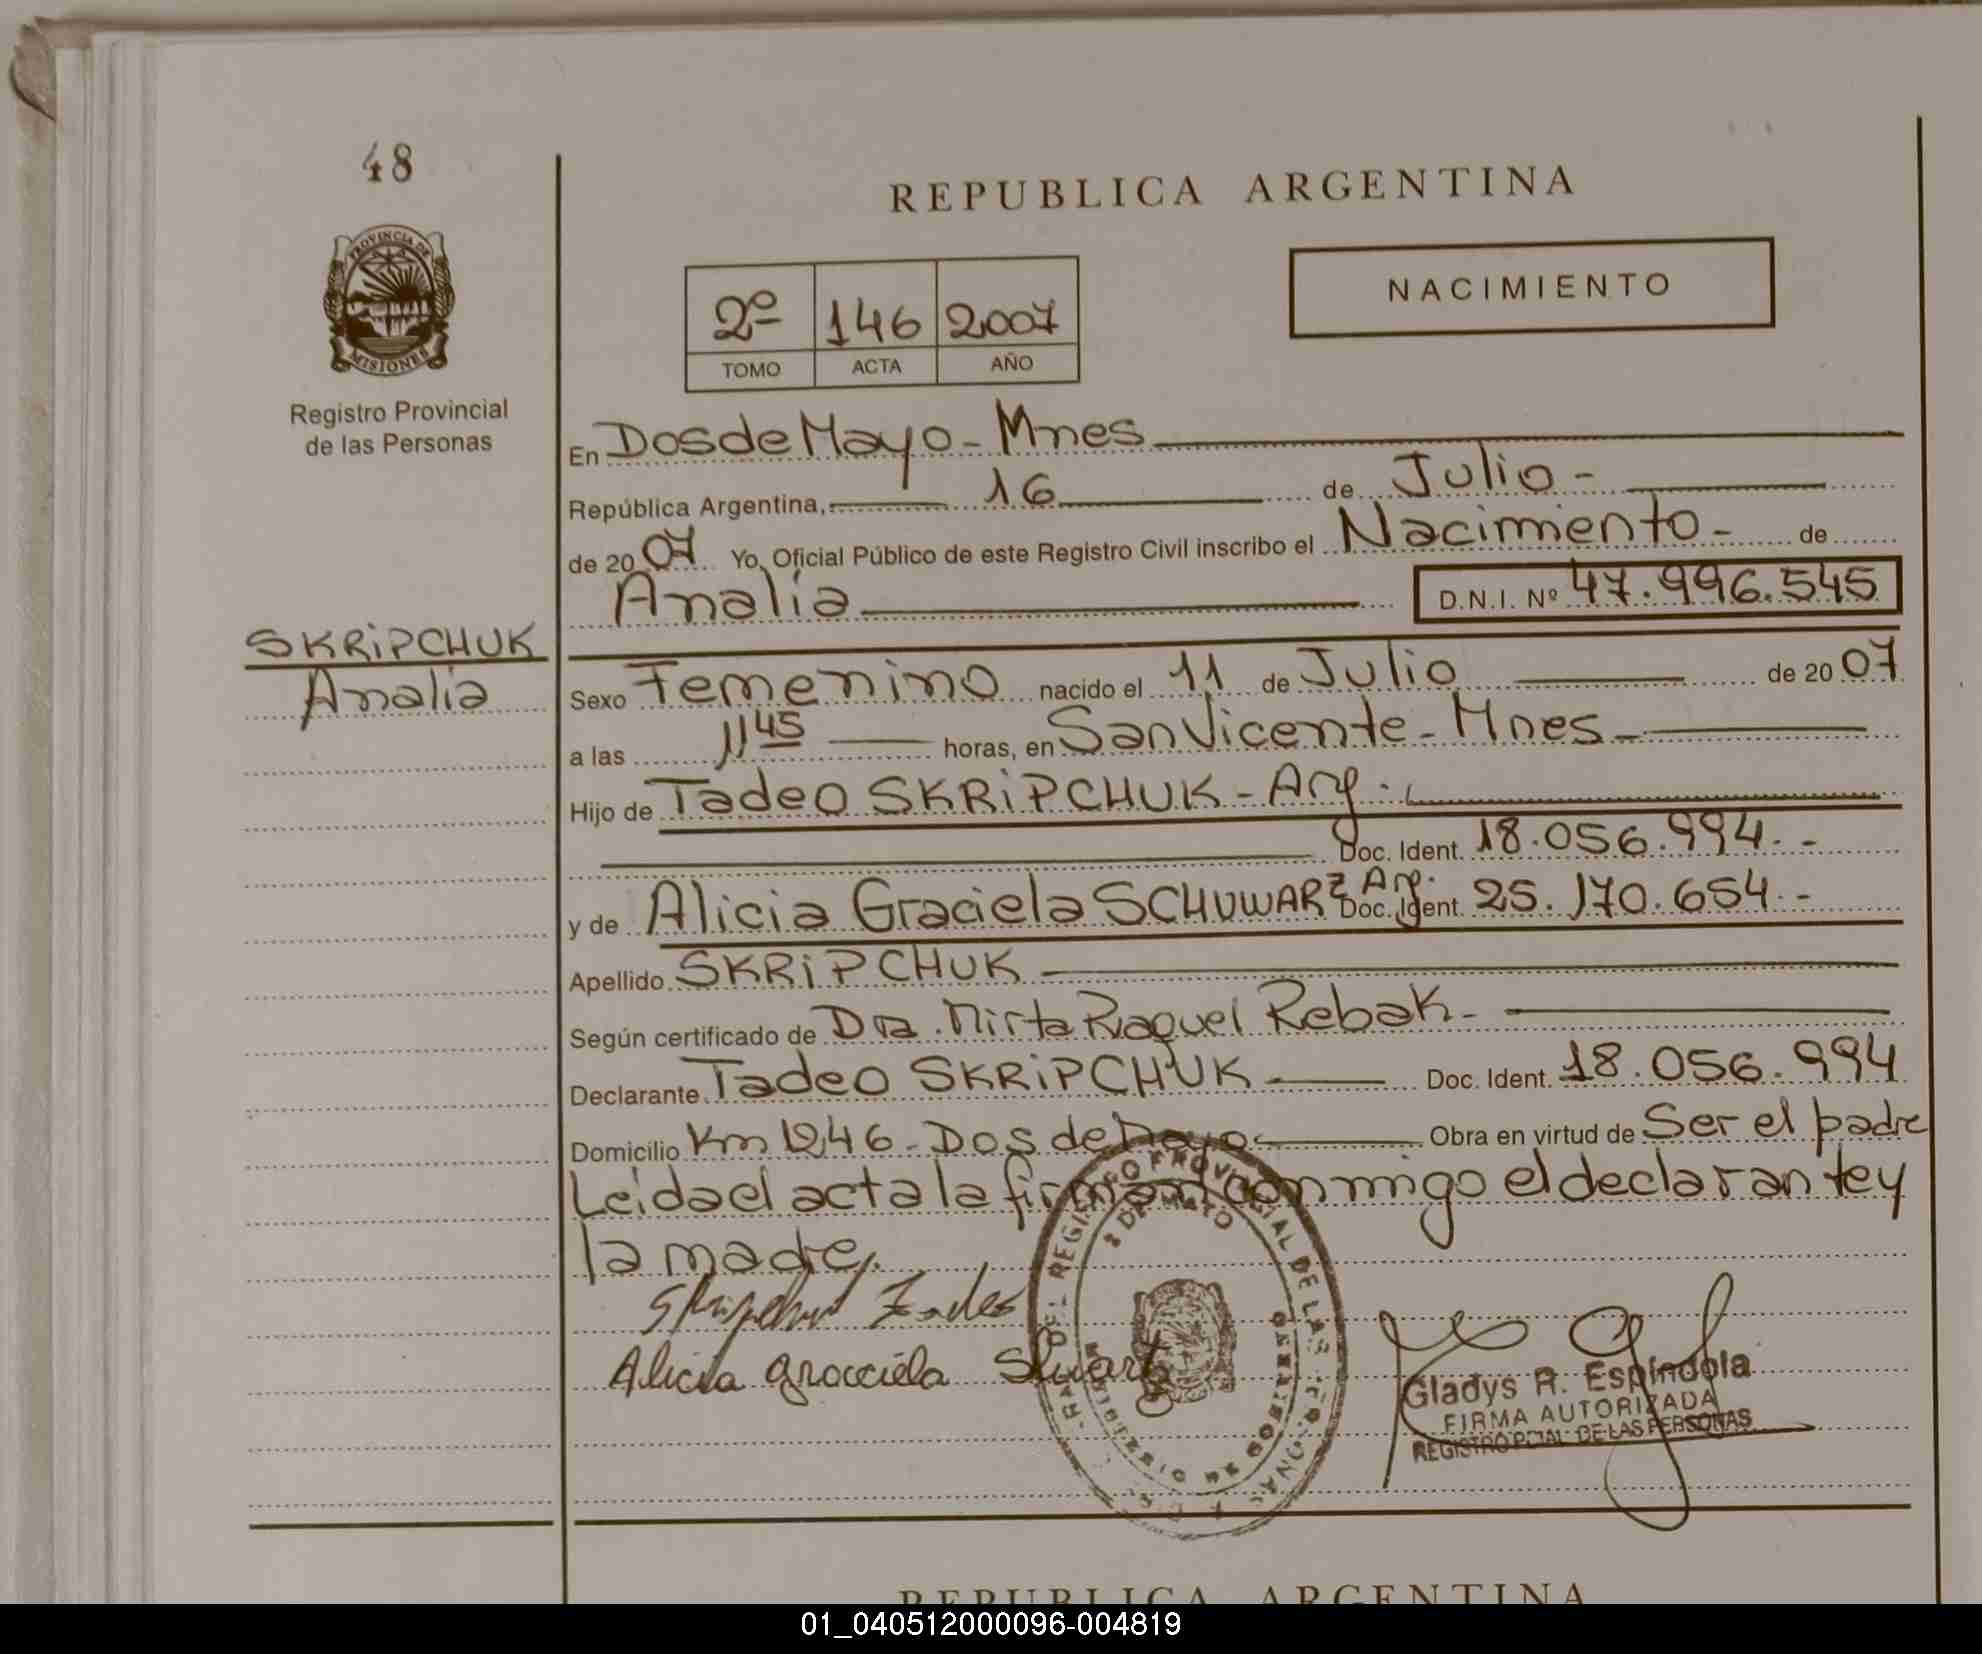 48
REPUBLICA ARGENTINA
PROVINCIA DE
MISIONES
Registro Provincial
de las Personas
NACIMIENTO
2º 146 2007
TOMO ACTA AÑO
En Dos de Mayo - Mnes
República Argentina, 16 de Julio -
de 2007 Yo, Oficial Público de este Registro Civil inscribo el Nacimiento - de
Analía D.N.I. Nº 47.996.545
SKRiPCHUK
Analía
Sexo Femenino nacido el 11 de Julio de 2007
a las 11 45 horas, en San Vicente - Mnes -
Hijo de Tadeo SKRiPCHUK - Arg.
Doc. Ident. 18.056.994.-
y de Alicia Graciela SCHUWARZ Arg. Doc. Ident. 25.170.654.-
Apellido SKRiPCHUK
Según certificado de Dra. Mirta Raquel Rebak -
Declarante Tadeo SKRiPCHUK Doc. Ident. 18.056.994
Domicilio Km 1246 - Dos de Mayo Obra en virtud de Ser el padre
Leida el acta la firman conmigo el declarante y
la madre.
Skripchuk Tadeo
Alicia gracciela
REGISTRO PROVINCIAL DE LAS
2 DE MAYO
Gladys R. Espíndola
FIRMA AUTORIZADA
REGISTRO PCIAL DE LAS PERSONAS
REPUBLICA ARGENTINA
01_040512000096-004819